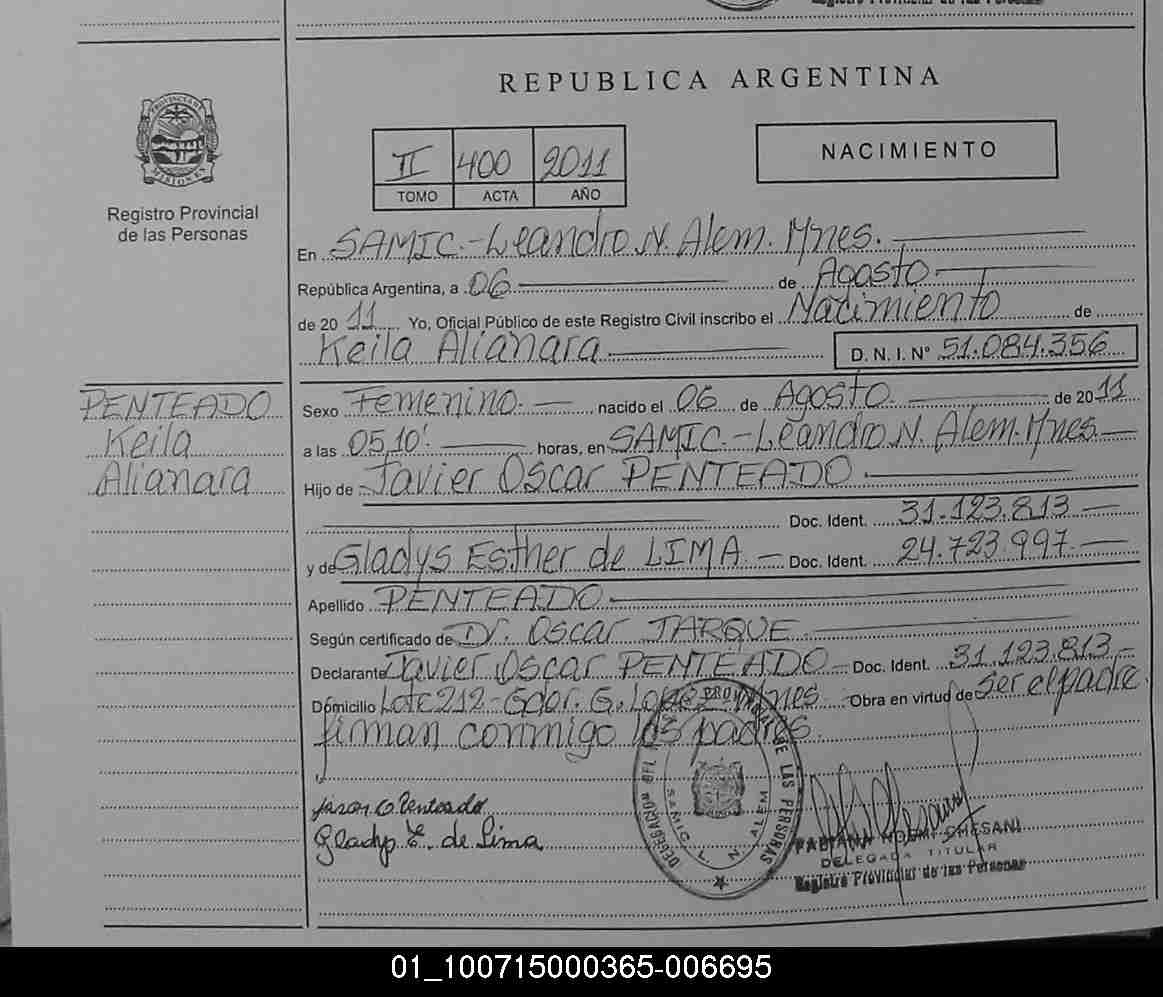 Registro Provincial de las Personas
REPUBLICA ARGENTINA
PROVINCIA DE
MISIONES
Registro Provincial
de las Personas
II 400 2011
TOMO ACTA AÑO
NACIMIENTO
En SAMIC.-Leandro N. Alem. Mnes.
República Argentina, a 06 de Agosto
de 2011 Yo, Oficial Público de este Registro Civil inscribo el Nacimiento de
Keila Alianara D. N. I. Nº 51.084.356
PENTEADO
Keila
Alianara
Sexo Femenino. nacido el 06 de Agosto. de 2011
a las 05,10' horas, en SAMIC.-Leandro N. Alem. Mnes
Hijo de Javier Oscar PENTEADO
Doc. Ident. 31.123.813
y de Gladys Esther de LIMA Doc. Ident. 24.723.997
Apellido PENTEADO
Según certificado de Dr. Oscar JARQUE
Declarante Javier Oscar PENTEADO Doc. Ident. 31.123.813
Domicilio Lote 212-Gdor. G. Lopez-Mnes. Obra en virtud de ser el padre
firman conmigo los padres.
Penteado
Gladys E. de Lima
DELEGACION DEL PROVINCIAL DE LAS PERSONAS
SAMIC L. N. ALEM
FABIANA NOEMI CHESANI
DELEGADA TITULAR
Registro Provincial de las Personas
01_100715000365-006695